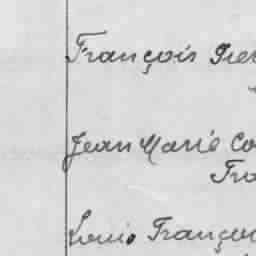 François Pier
Jean Marie Co
Fra
Louis François